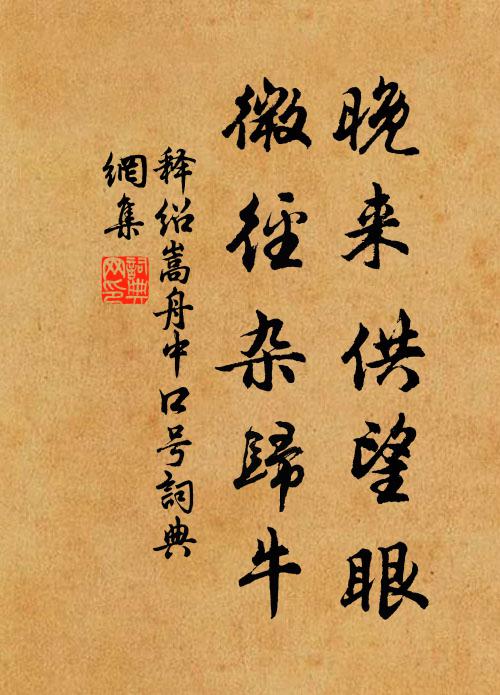 晚来供望眼
微径杂歸牛
释绍嵩舟中口号詞典
網集
詞典
网印